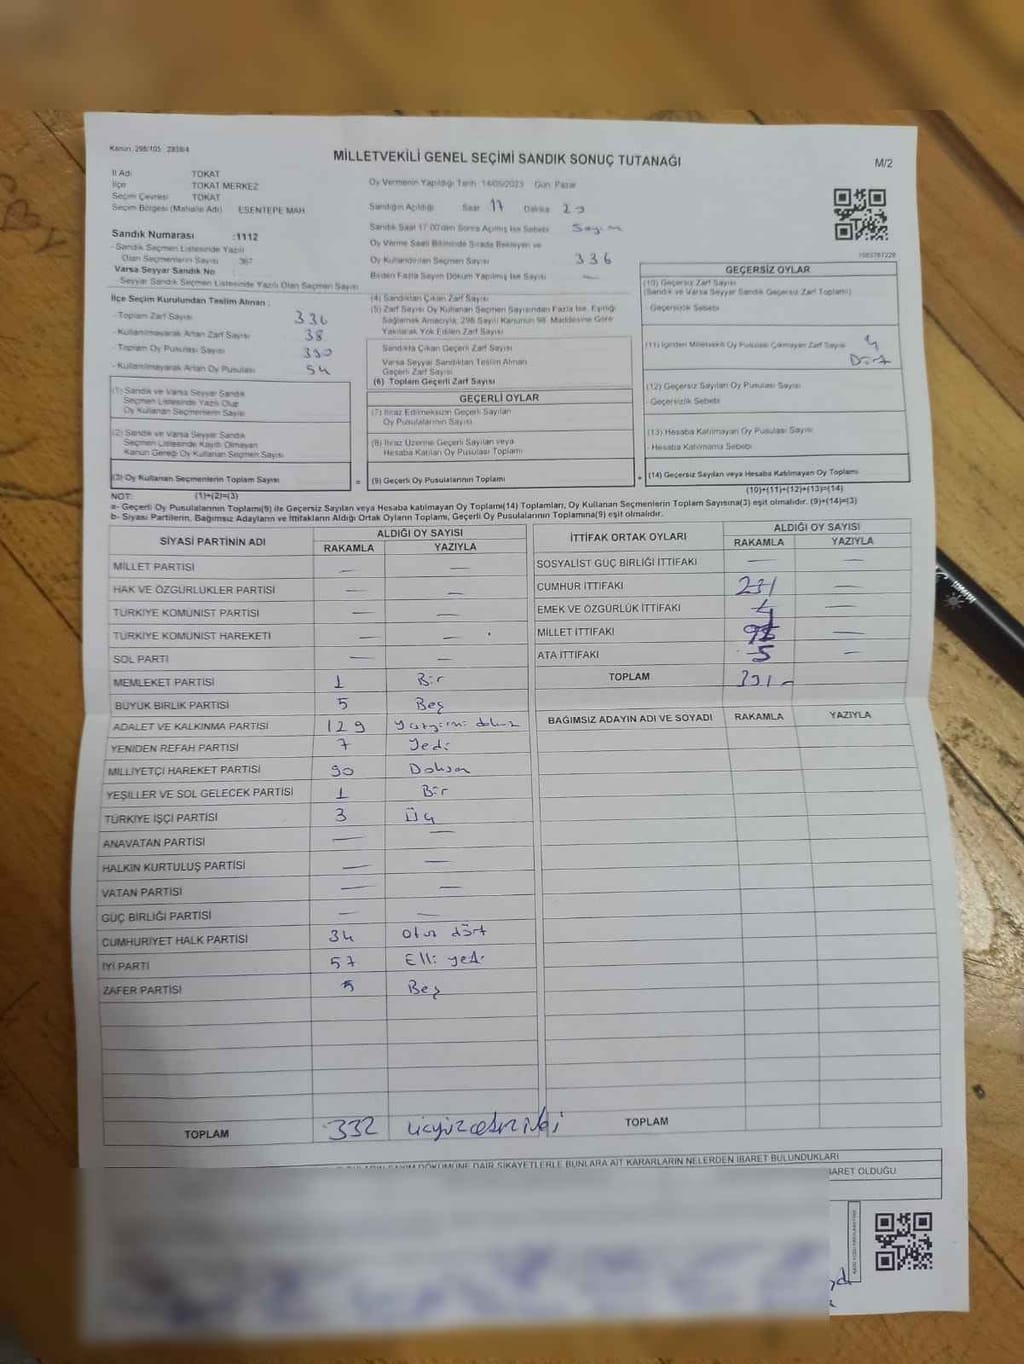 Kanun: 298/105 2839/4
MİLLETVEKİLİ GENEL SEÇİMİ SANDIK SONUÇ TUTANAĞI
M/2
İl Adı TOKAT
İlçe TOKAT MERKEZ
Seçim Çevresi TOKAT
Seçim Bölgesi (Mahalle Adı) ESENTEPE MAH
Sandık Numarası :1112
- Sandık Seçmen Listesinde Yazılı
Olan Seçmenlerin Sayısı 367
Varsa Seyyar Sandık No
- Seyyar Sandık Seçmen Listesinde Yazılı Olan Seçmen Sayısı
Oy Vermenin Yapıldığı Tarih 14/05/2023 Gün Pazar
Sandığın Açıldığı Saat 17 Dakika 20
Sandık Saat 17.00'den Sonra Açılmış İse Sebebi Sayım
Oy Verme Saati Bitiminde Sırada Bekleyen ve
Oy Kullandırılan Seçmen Sayısı 336
Birden Fazla Sayım Döküm Yapılmış İse Sayısı —
İlçe Seçim Kurulundan Teslim Alınan :
- Toplam Zarf Sayısı
- Kullanılmayarak Artan Zarf Sayısı 38
- Toplam Oy Pusulası Sayısı
- Kullanılmayarak Artan Oy Pusulası 54
(1) Sandık ve Varsa Seyyar Sandık
Seçmen Listesinde Yazılı Olup
Oy Kullanan Seçmenlerin Sayısı
(2) Sandık ve Varsa Seyyar Sandık
Seçmen Listesinde Kayıtlı Olmayan
Kanun Gereği Oy Kullanan Seçmen Sayısı
(3) Oy Kullanan Seçmenlerin Toplam Sayısı
(4) Sandıktan Çıkan Zarf Sayısı
(5) Zarf Sayısı Oy Kullanan Seçmen Sayısından Fazla İse, Eşitliği
Sağlamak Amacıyla; 298 Sayılı Kanunun 98. Maddesine Göre
Yakılarak Yok Edilen Zarf Sayısı
Sandıkta Çıkan Geçerli Zarf Sayısı
Varsa Seyyar Sandıktan Teslim Alınan
Geçerli Zarf Sayısı
(6) Toplam Geçerli Zarf Sayısı
GEÇERLİ OYLAR
(7) İtiraz Edilmeksizin Geçerli Sayılan
Oy Pusulalarının Sayısı
(8) İtiraz Üzerine Geçerli Sayılan veya
Hesaba Katılan Oy Pusulası Toplamı
= (9) Geçerli Oy Pusulalarının Toplamı
GEÇERSİZ OYLAR
(10) Geçersiz Zarf Sayısı
(Sandık ve Varsa Seyyar Sandık Geçersiz Zarf Toplamı)
- Geçersizlik Sebebi
(11) İçinden Milletvekili Oy Pusulası Çıkmayan Zarf Sayısı 4
Dört
(12) Geçersiz Sayılan Oy Pusulası Sayısı
- Geçersizlik Sebebi
(13) Hesaba Katılmayan Oy Pusulası Sayısı
- Hesaba Katılmama Sebebi
+ (14) Geçersiz Sayılan veya Hesaba Katılmayan Oy Toplamı
NOT: (1)+(2)=(3) (10)+(11)+(12)+(13)=(14)
a- Geçerli Oy Pusulalarının Toplamı(9) ile Geçersiz Sayılan veya Hesaba katılmayan Oy Toplamı(14) Toplamları, Oy Kullanan Seçmenlerin Toplam Sayısına(3) eşit olmalıdır. (9)+(14)=(3)
b- Siyasi Partilerin, Bağımsız Adayların ve İttifakların Aldığı Ortak Oyların Toplamı, Geçerli Oy Pusulalarının Toplamına(9) eşit olmalıdır.
SİYASİ PARTİNİN ADI ALDIĞI OY SAYISI
RAKAMLA YAZIYLA
MİLLET PARTİSİ — —
HAK VE ÖZGÜRLÜKLER PARTİSİ — —
TÜRKİYE KOMÜNİST PARTİSİ — —
TÜRKİYE KOMÜNİST HAREKETİ — —
SOL PARTİ — —
MEMLEKET PARTİSİ 1 Bir
BÜYÜK BİRLİK PARTİSİ 5 Beş
ADALET VE KALKINMA PARTİSİ 129
YENİDEN REFAH PARTİSİ 7 Yedi
MİLLİYETÇİ HAREKET PARTİSİ 90 Doksan
YEŞİLLER VE SOL GELECEK PARTİSİ 1 Bir
TÜRKİYE İŞÇİ PARTİSİ 3 Üç
ANAVATAN PARTİSİ — —
HALKIN KURTULUŞ PARTİSİ — —
VATAN PARTİSİ — —
GÜÇ BİRLİĞİ PARTİSİ — —
CUMHURİYET HALK PARTİSİ 34 Otuz dört
İYİ PARTİ 57 Elli yedi
ZAFER PARTİSİ 5 Beş
TOPLAM 332
İTTİFAK ORTAK OYLARI ALDIĞI OY SAYISI
RAKAMLA YAZIYLA
SOSYALİST GÜÇ BİRLİĞİ İTTİFAKI — —
CUMHUR İTTİFAKI 231 —
EMEK VE ÖZGÜRLÜK İTTİFAKI 4 —
MİLLET İTTİFAKI —
ATA İTTİFAKI 5 —
TOPLAM
BAĞIMSIZ ADAYIN ADI VE SOYADI RAKAMLA YAZIYLA
TOPLAM
DÖKÜMÜNE DAİR ŞİKAYETLERLE BUNLARA AİT KARARLARIN NELERDEN İBARET BULUNDUKLARI
İBARET OLDUĞU